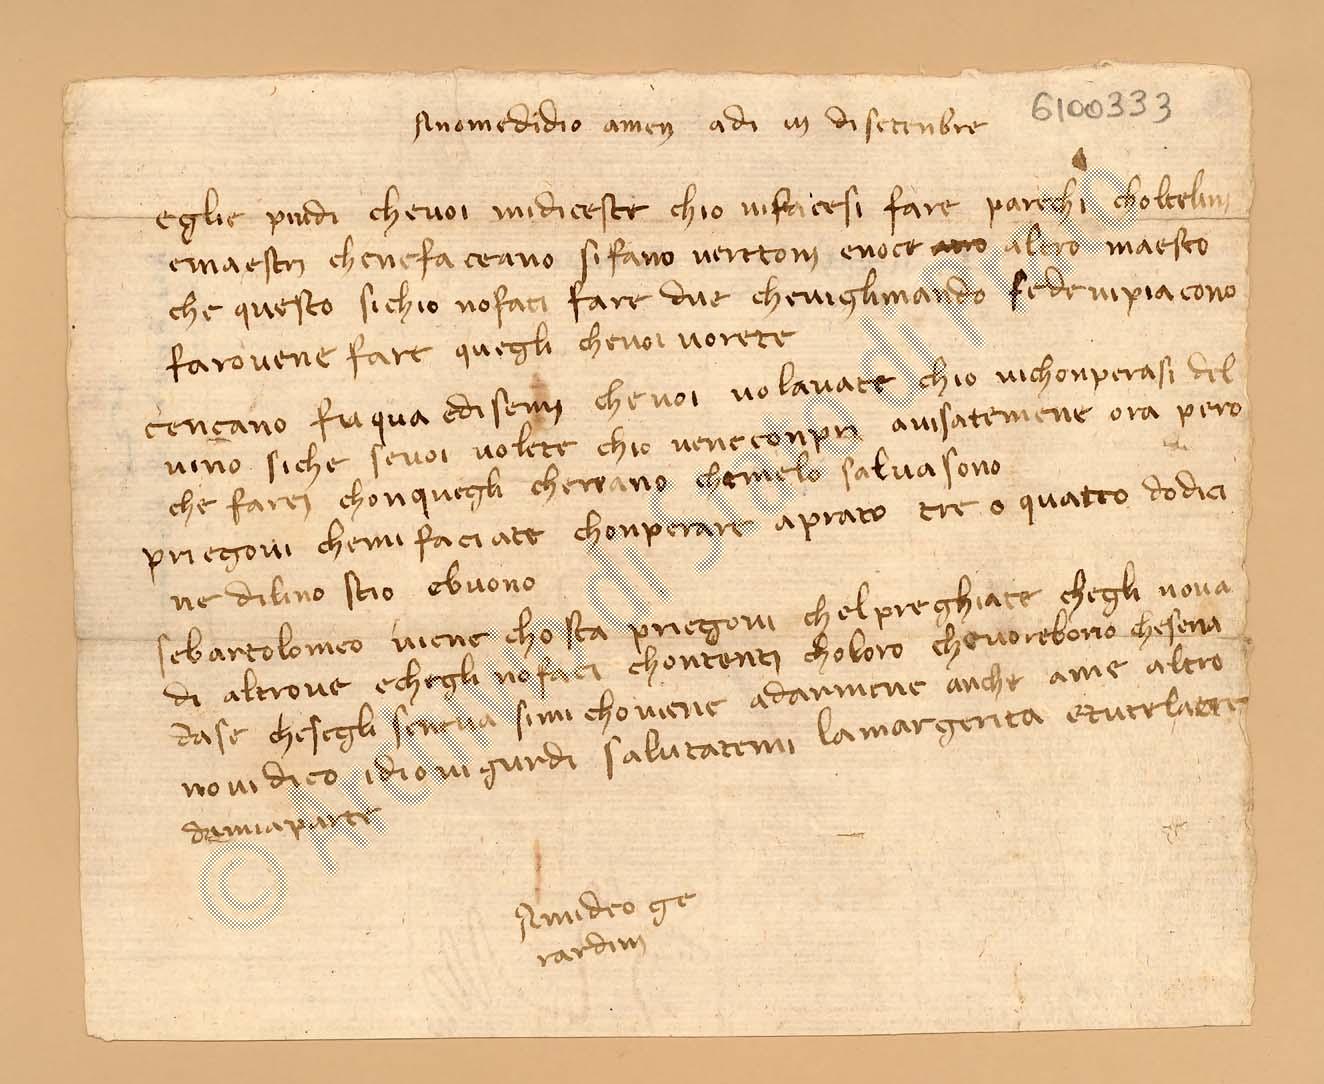 Anomedidio amen adi iii di setenbre
6100333
eglie piudi chevoi midiceste chio vifacesi fare parechi choltelini
emaestri chenefaceano sifano verettoni enoce ano altro maesto
che questo sichio nofaci fare due cheviglimando sedevipiacono
farovene fare quegli chevoi vorete
cencano fu qua edisemi chevoi volavate chio vichonperasi del
vino siche sevoi volete chio veneconpri avisatemene ora pero
che farei chonquegli cherano chemelo salvasono
priegovi chemi faciate chonperare aprato tre o quatro dodici
ne dilino stio ebuono
sebartolomeo viene chosta priegovi chelpreghiate chegli nova
di altrove echegli nofaci chontenti choloro chevorebono chesena
dase chesegli seneva simi choviene adarmene anche ame altro
novidico idiovigurdi salutatemi lamargerita etuttelatre
damiaparte
Amideo ge
rardini
© Archivio di Stato di Prato